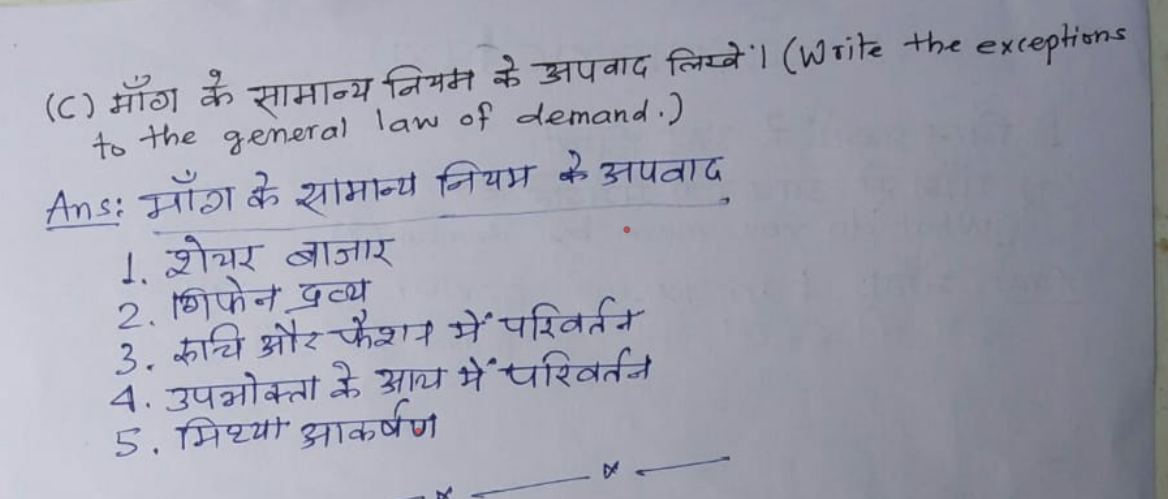 (C) माँग के सामान्य नियम के अपवाद लिखें। (Write the exceptions
to the general law of demand.)
Ans: माँग के सामान्य नियम के अपवाद
1. शेयर बाजार
2. गिफेन द्रव्य
3. रूचि और फैशन में परिवर्तन
4. उपभोक्ता के आय में परिवर्तन
5. मिथ्या आकर्षण